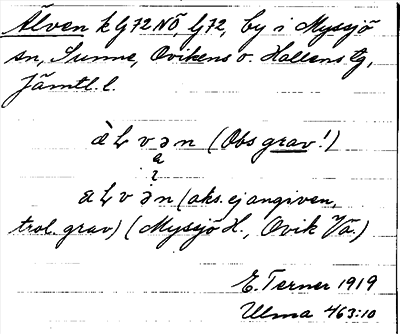 Älven k G72NÖ, G72, by i Myssjö
sn, Sunne, Ovikens o. Hallens tg,
Jämtl. l.
àL v ə n (Obs grav!)
a
ɿ
aL v ə n (aks. ej angiven,
trol. grav) (Myssjö H., Ovik Va.)
E. Terner 1919
Ulma 463:10